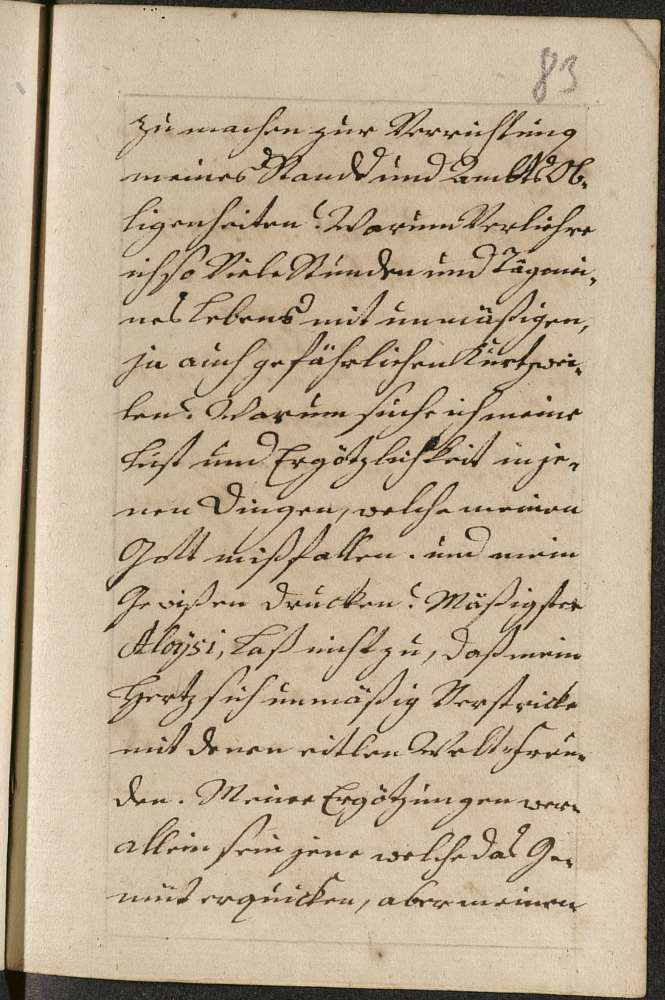 83
zu machen zur Verrichtung
meines Stands und Ambts Ob-
ligenheiten? Warum Verliehre
ich so Viele Stunden und Täg mei-
nes Lebens mit unmäßigen,
ja auch gefährlichen Kurtzwei-
len? Warum suche ich meine
Lust und Ergötzlichkeit in je-
nen Dingen, welche meinen
Gott mißfallen. und mein
Gewißen drucken? Mäßigster
Aloÿsi, Laß nicht zu, daß mein
Hertz sich unmäßig Verstricke
mit denen eitlen Welt-Freu-
den. Meine Ergötzungen
allein sein jene welche das Ge-
müt erquicken, aber meinen